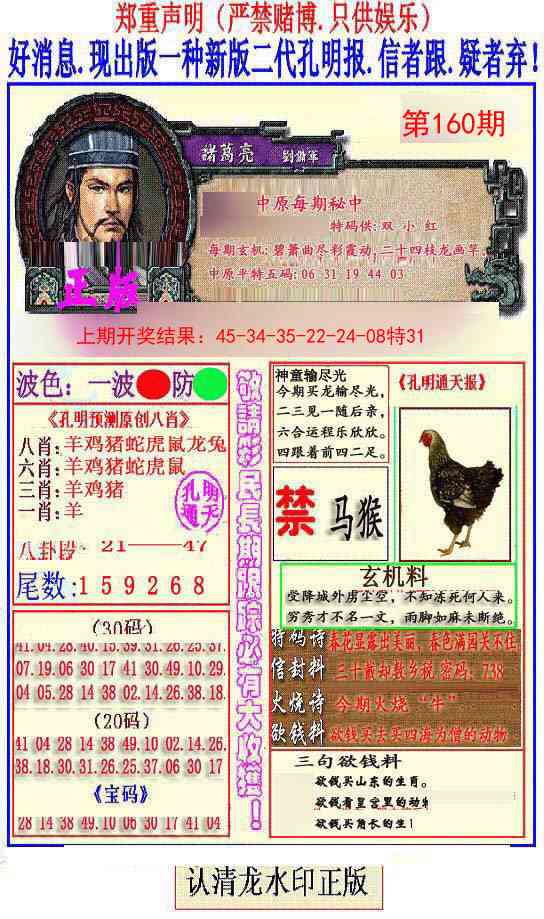 郑重声明（严禁赌博.只供娱乐）
好消息.现出版一种新版二代孔明报.信者跟.疑者弃！
第160期
諸葛亮 劉備軍
中原每期秘中
特码供:双 小 红
每期玄机:碧萧曲尽彩霞动,二十四枝龙画竿。
中原平特五码:06 31 19 44 03
正版
上期开奖结果：45-34-35-22-24-08特31
波色：一波 防
《孔明预测原创八肖》
八肖:羊鸡猪蛇虎鼠龙兔
六肖:羊鸡猪蛇虎鼠
三肖:羊鸡猪
一肖:羊
孔明
通天
21——47
尾数:159268
(30码)
41.04.28.40.15.39.31.26.25.37.
07.19.06.30 17 41 30.49.10.29
04 05.28 14 38 02.14 26.38.18
(20码)
41 04 28 14 38 49.10 02.14.26.
38.18.30.31.26.25.37.06 30 17
《宝码》
28 14 38 49.10 06 30 17 41 04
敬請彩民長期跟踪必有大收獲！
神童输尽光
今期买龙输尽光，
二三见一随后亲，
六合运程乐欣欣。
四跟着前四二足。
《孔明通天报》
禁 马猴
玄机料
受降城外虏尘空，不知冻死何人来。
穷秀才不名一文，雨脚如麻未断绝。
特码诗 春花显露出美丽，春色满园关不住
信封料 三十载却数乡税 密码：738
火烧诗 今期火烧“牛”
欲钱料 欲钱买去买四海为僧的动物
三句欲钱料
欲钱买山东的生肖。
欲钱看皇宫里的动物
欲钱买角长的生
认清龙水印正版